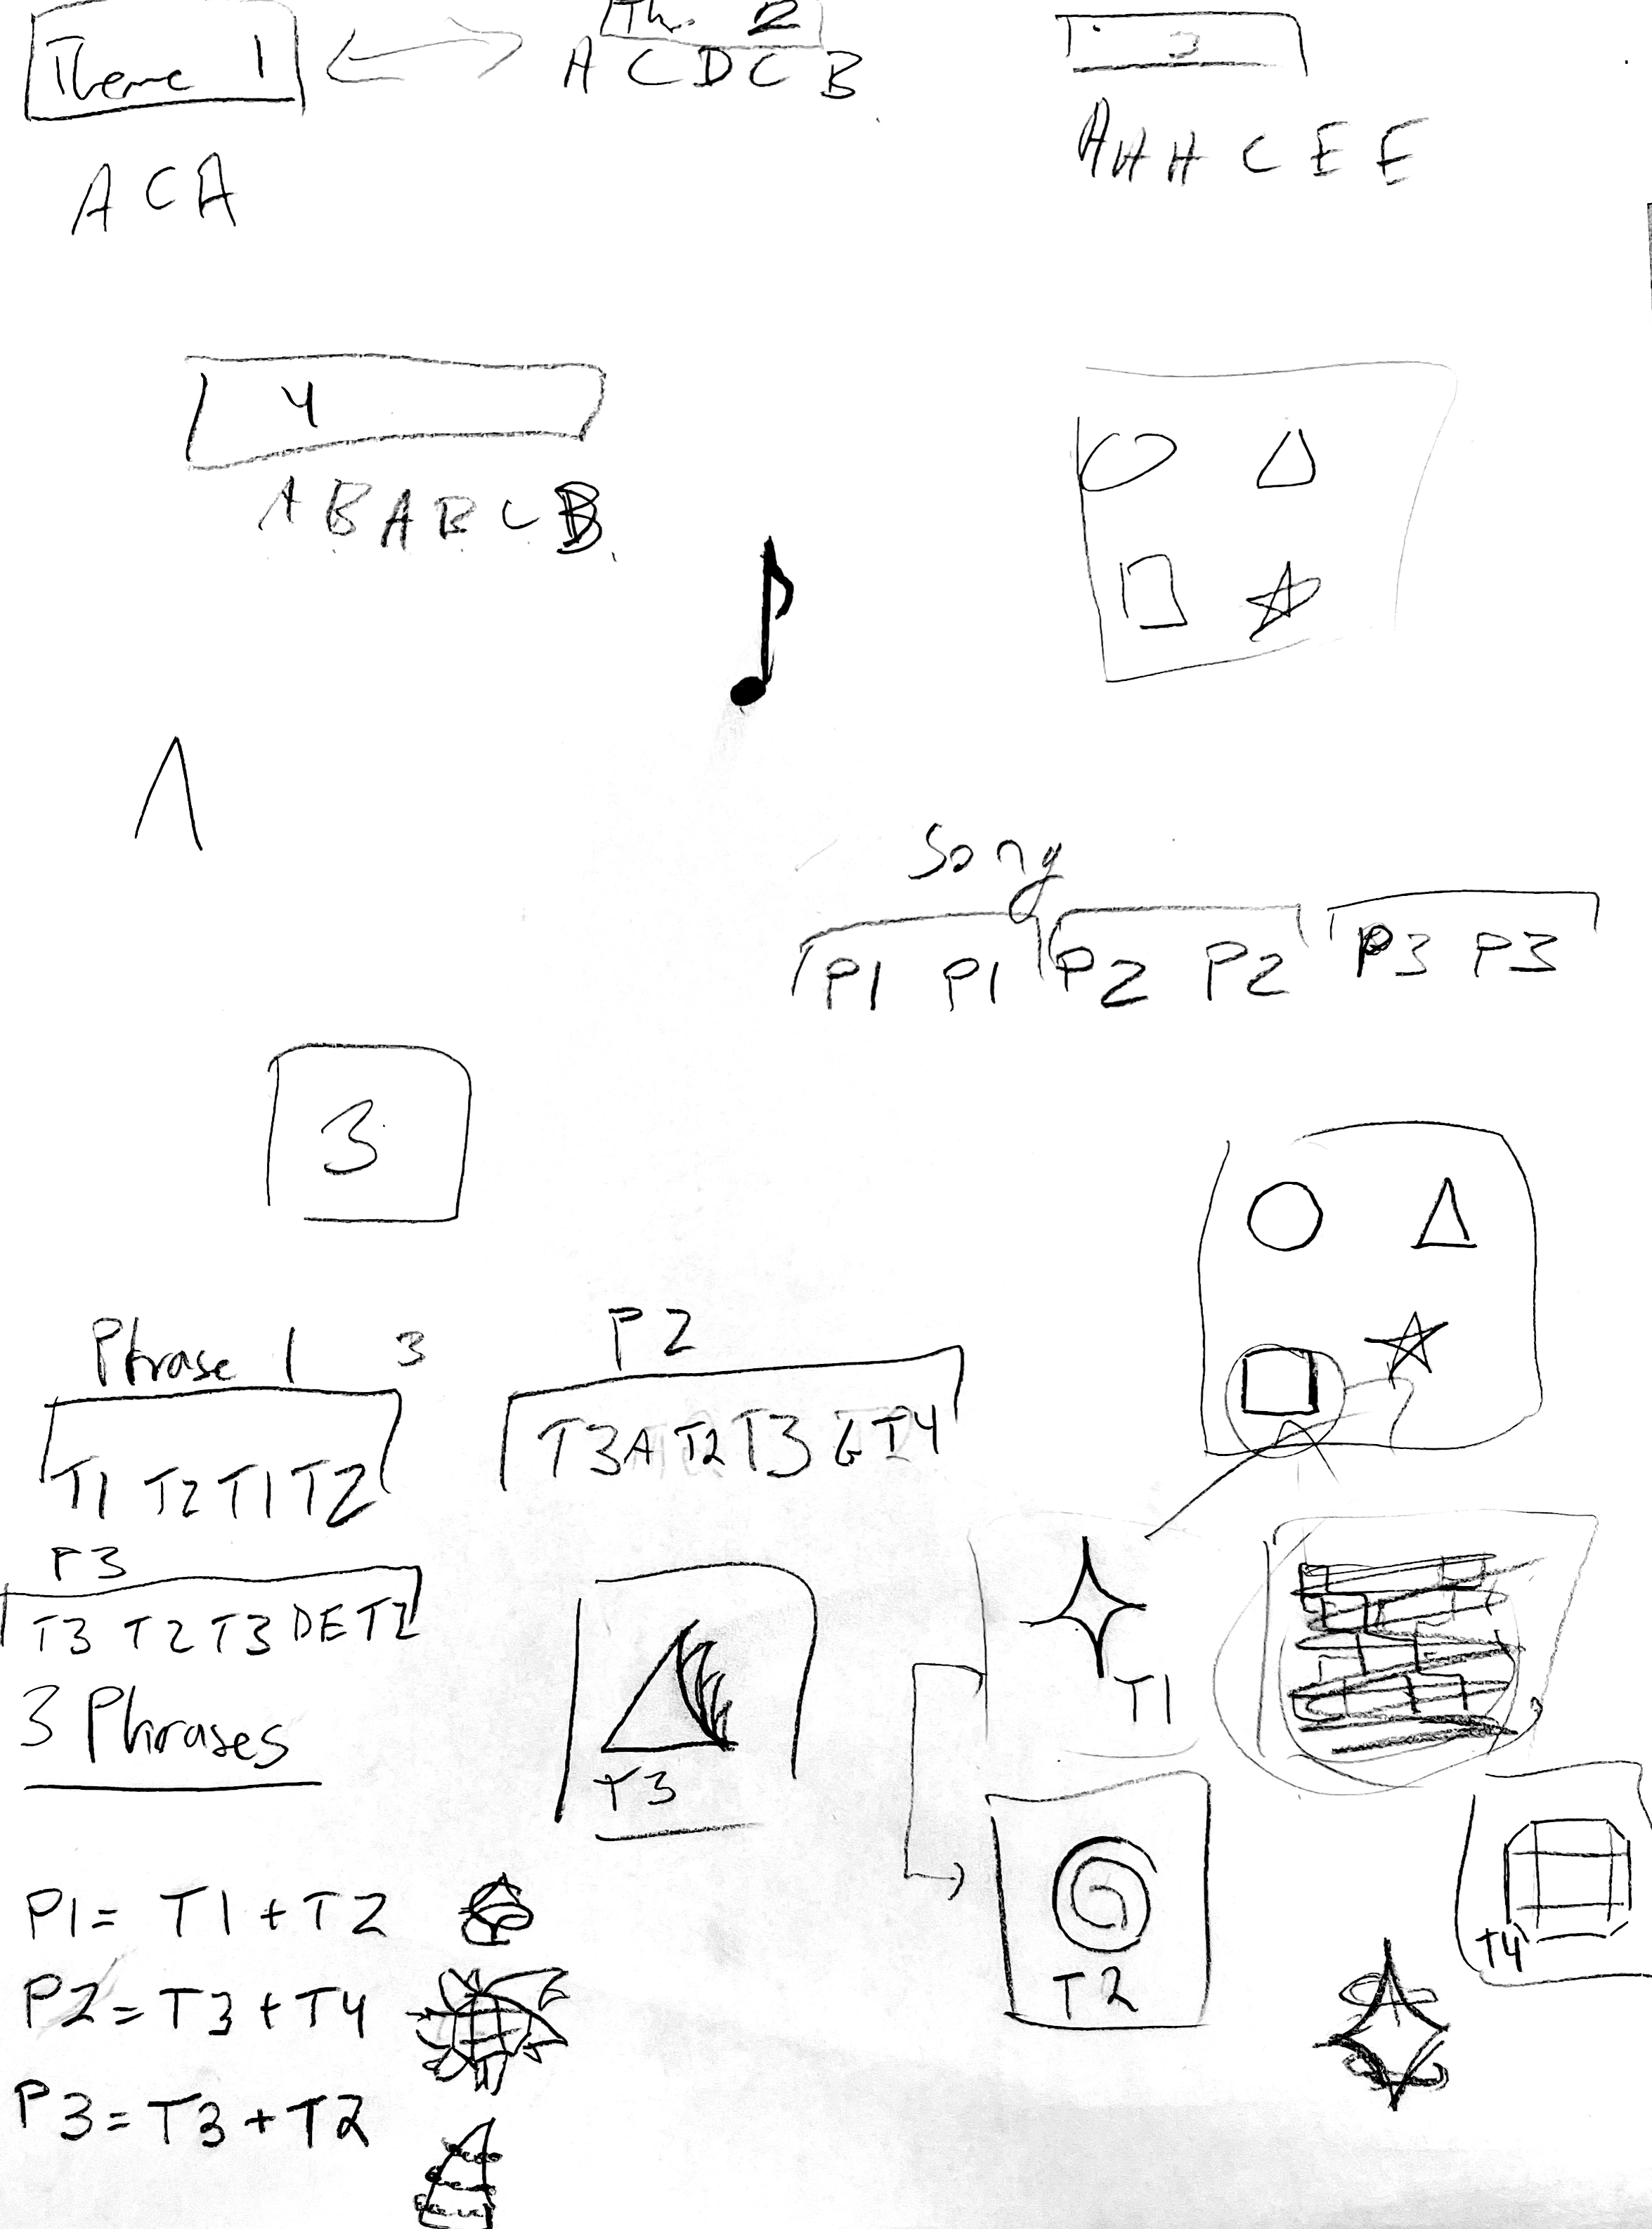 Theme 1
Th. 2
3
A C D C B
A C A
A H H C E E
4
A B A B C B
Song
P1 P1 P2 P2 P3 P3
3
Phrase 1 3
P2
T1 T2 T1 T2
T3 A T2 T3 G T4
P3
T3 T2 T3 D E T2
3 Phrases
T3
T1
T2
T4
P1 = T1 + T2
P2 = T3 + T4
P3 = T3 + T2